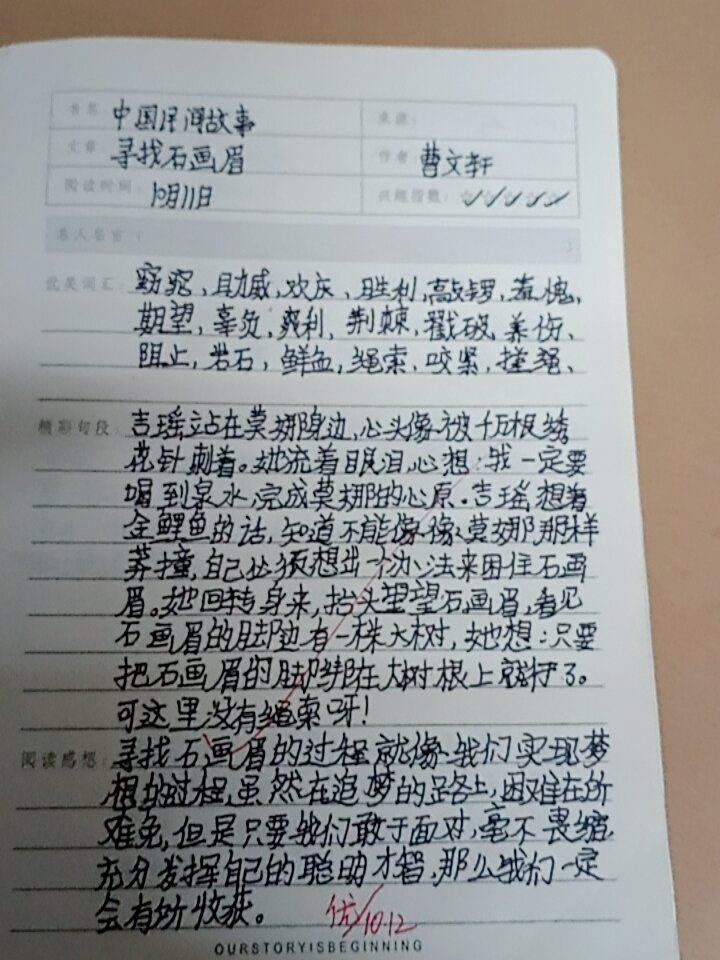 书名: 中国民间故事 来源:
文章: 寻找石画眉 作者: 曹文轩
阅读时间: 10月11日 兴趣指数:
名人名言( )
优美词汇: 窈窕、助威、欢庆、胜利、敲锣、羞愧、
期望、辜负、爽利、荆棘、戳破、养伤、
阻止、岩石、鲜血、绳索、咬紧、撞强、
精彩句段: 吉瑶站在莫娜身边,心头像被千万根绣
花针刺着。她流着眼泪,心想:我一定要
喝到泉水,完成莫娜的心原。吉瑶想着
金鲤鱼的话,知道不能像像莫娜那样
莽撞,自己必须想出一个办法来困住石画
眉。她回转身来,抬头望望石画眉,看见
石画眉的脚边有一株大树,她想:只要
把石画眉的脚绑在大树根上就好了。
可这里没有绳索呀!
阅读感想: 寻找石画眉的过程就像我们实现梦
想的过程,虽然在追梦的路上,困难在所
难免,但是只要我们敢于面对,毫不畏缩,
充分发挥自己的聪明才智,那么我们一定
会有所收获。 优 10.12
OURSTORYISBEGINNING